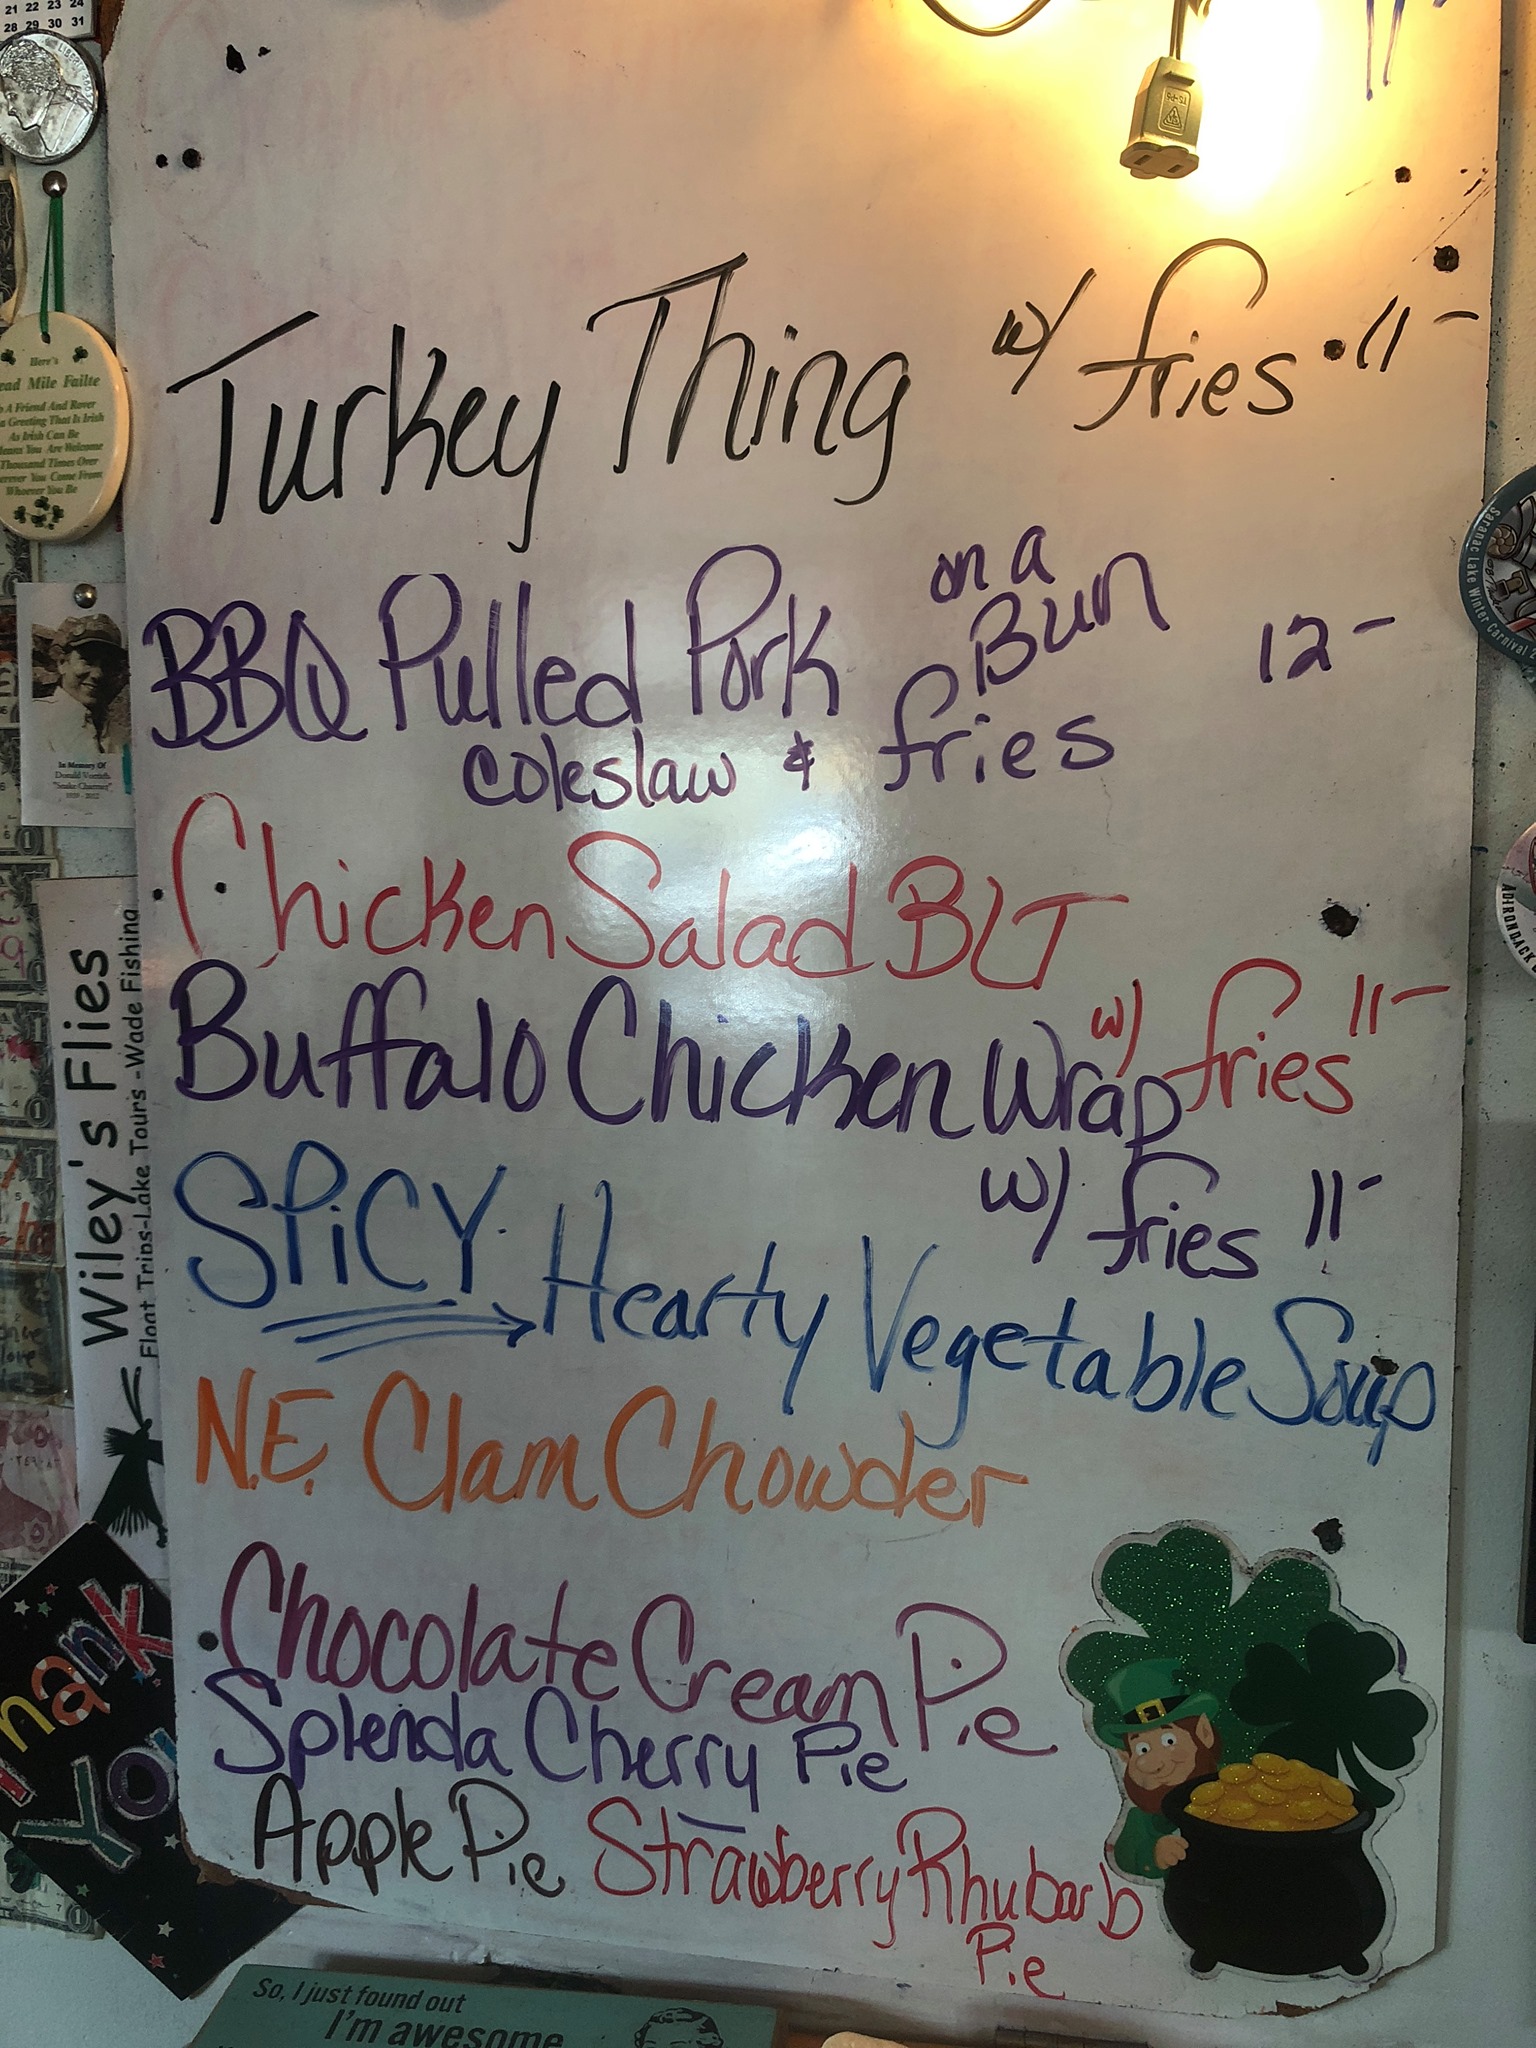 21 22 23 24
28 29 30 31
LIBERTY
Here's
ead Mile Failte
A Friend And Rover
a Greeting That Is Irish
As Irish Can Be
Means You Are Welcome
Thousand Times Over
erever You Come From
Whoever You Be
In Memory Of
"Snake Charmer"
Wiley's Flies
Float Trips-Lake Tours-Wade Fishing
Turkey Thing w/ fries 11-
BBQ Pulled Pork on a Bun 12-
coleslaw & fries
Chicken Salad BLT
w/ fries 11-
Buffalo Chicken Wrap
w/ fries 11-
SPiCY Hearty Vegetable Soup
N.E. Clam Chowder
Chocolate Cream Pie
Splenda Cherry Pie
Apple Pie Strawberry Rhubarb
Pie
Saranac Lake Winter Carnival
ADIRONDACK
hank
You
So, I just found out
I'm awesome